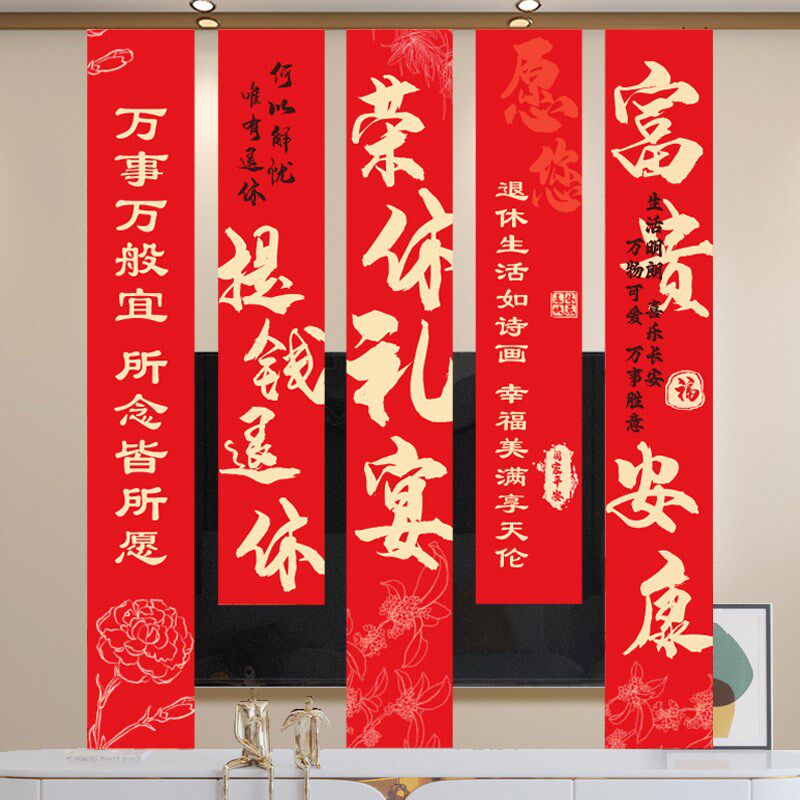 万事万般宜 所念皆所愿
何以解忧
唯有退休
提钱退休
荣休礼宴
愿您
退休生活如诗画 幸福美满享天伦
富貴安康
生活明朗 喜乐长安
万物可爱 万事胜意
福